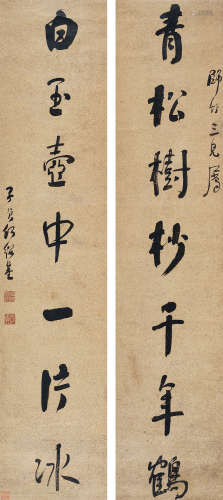 青松樹杪千年鶴
三兄屬
白玉壺中一片冰
子貞何紹基